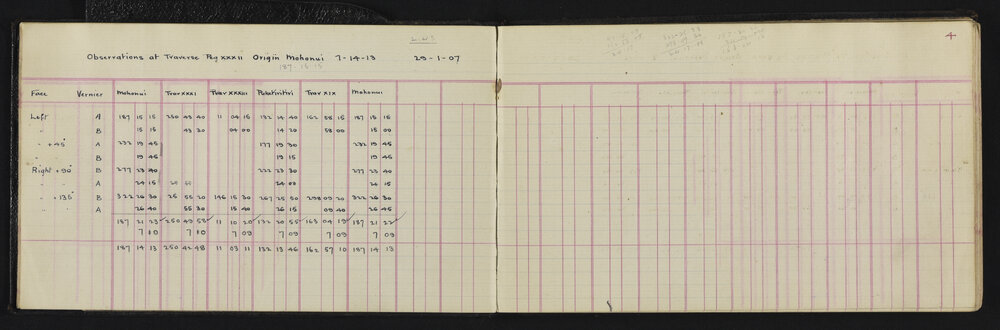 L.W.S
Observations at Traverse Peg XXXII Origin Mohonui 7-14-13 29-1-07
187-14-13
Face Vernier Mohonui Trav XXXI Trav XXXIII Pukatiritiri Trav XIX Mohonui
Left A 187 15 15 250 43 40 11 04 15 132 14 40 162 58 15 187 15 15
" B 15 15 43 20 04 00 14 20 58 00 15 00
" +45° A 232 19 45 177 19 30 232 19 45
" B 19 45 19 15 19 45
Right +90° B 277 23 40 222 23 30 277 23 40
" " A 24 15 24 00 24 15
" +135° B 322 26 30 25 55 20 146 15 30 267 25 50 298 09 20 322 26 30
" A 26 40 55 30 15 40 26 15 09 40 26 45
187 21 23 250 49 58 11 10 20 132 20 55 163 04 19 187 21 22
7 10 7 10 7 09 7 09 7 09 7 09
187 14 13 250 42 48 11 03 11 132 13 46 162 57 10 187 14 13
4